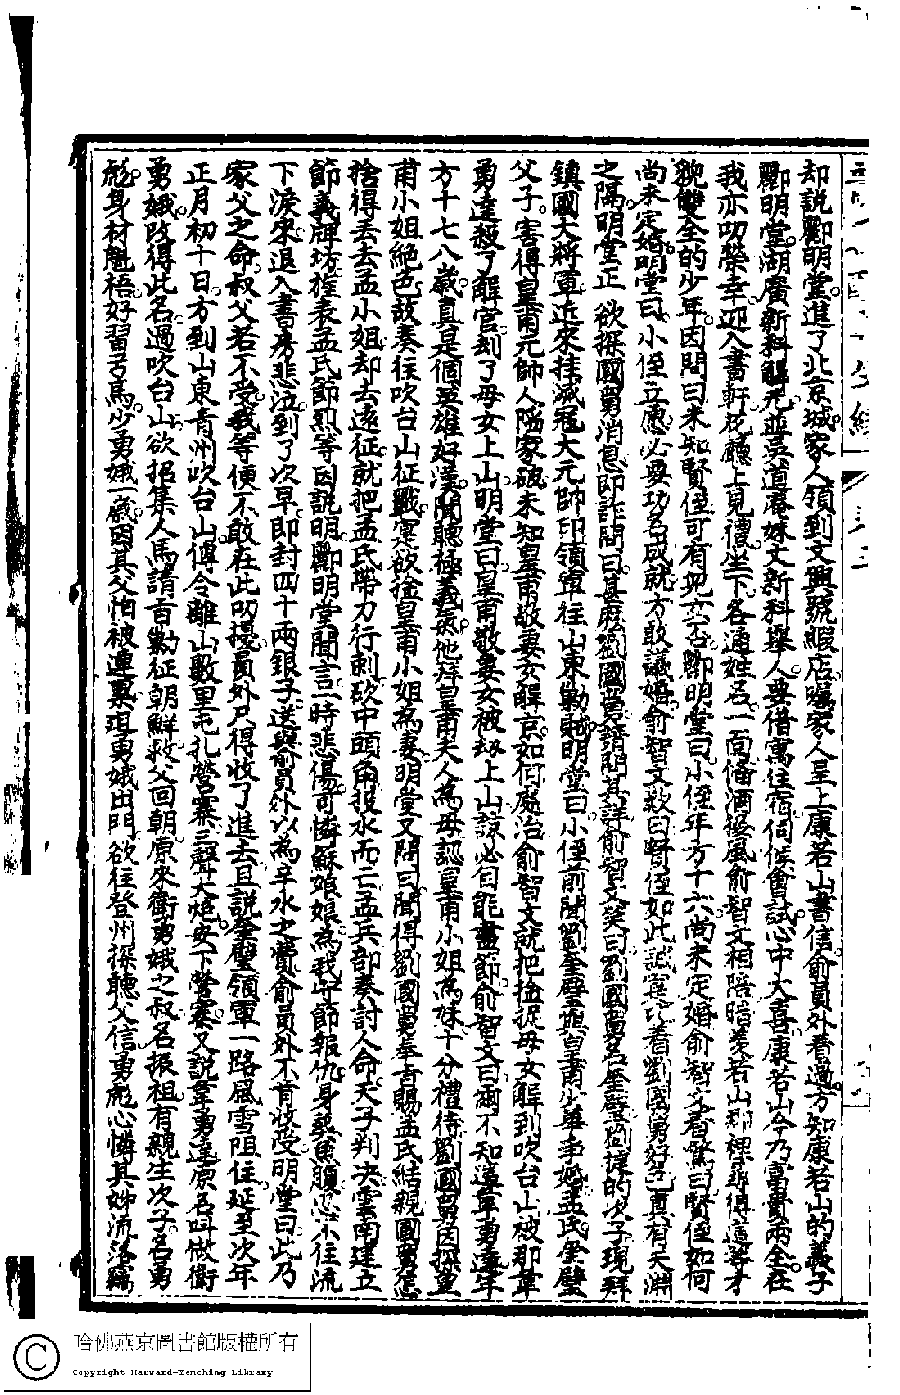 却說酈明堂進了北京城家人領到文興號緞店囑家人呈上康若山書信俞員外看過方知康若山的義子
酈明堂湖廣新科解元並吳道菴妹丈新科舉人要借寓住宿伺候會試心中大喜康若山今乃富貴兩全在
我亦叨榮幸迎入書軒花廳上見禮坐下各通姓名一面俻酒接風俞智文相陪暗羨若山那裡尋得這等才
貌雙全的少年因問曰未知賢侄可有配 否酈明堂曰小侄年方十六尚未定婚俞智文看驚曰賢侄如何
尚未定婚明堂曰小侄立愿必要功名成就方敢議婚俞智文歎曰賢侄如此誠實 着劉國舅好色真有天淵
之隔明堂正欲探國舅消息即詐問曰甚麽劉國舅請問其詳俞智文笑曰劉國舅名奎璧劉捷的次子現拜
鎮國大將軍近來挂滅冦大元帥印領軍往山東勦賊明堂曰小侄前聞劉奎璧與皇甫少華爭婚孟氏奎璧
父子害得皇甫元帥人陷家破未知皇甫敬妻女解京如何處治俞智文就把擒捉母女解到吹台山被那韋
勇達殺了解官刼了母女上山明堂曰皇甫敬妻女被刼上山諒必自能盡節俞智文曰爾不知這韋勇達年
方十七八歲真是個英雄好漢聞聽極義氣他拜皇甫夫人為母認皇甫小姐為妹十分禮待劉國舅因探皇
甫小姐絕色故奏往吹台山征戰寔欲搶皇甫小姐為妻明堂又問曰聞得劉國舅奉旨賜孟氏結親國舅怎
捨得丢去孟小姐却去遠征就把孟氏帶刀行刺砍中頭角投水而亡孟兵部奏討人命天子判决雲南建立
節義牌坊旌表孟氏節烈等因説明酈明堂聞言一時悲傷可憐蘇娘娘為我守節報仇身喪魚腹忍不住流
下淚來退入書房悲泣到了次早即封四十兩銀子送與俞員外以為辛水之費俞員外不肯收受明堂曰此乃
家父之命叔父若不受我等便不敢在此叨擾員外只得收了進去且說奎璧領軍一路風雪阻住延至次年
正月初十日方到山東青州吹台山傳令離山數里屯扎營寨三聲大炮安下營寨又說韋勇達原名叫做衛
勇娥改得此名過吹台山欲招集人馬請旨勦征朝鮮救父回朝原來衛勇娥之叔名振祖有親生次子名勇
彪身材魁梧好習弓馬少勇娥一歲因其父怕被連累 勇娥出門欲往登州探聽父信勇彪心憐其姊流落